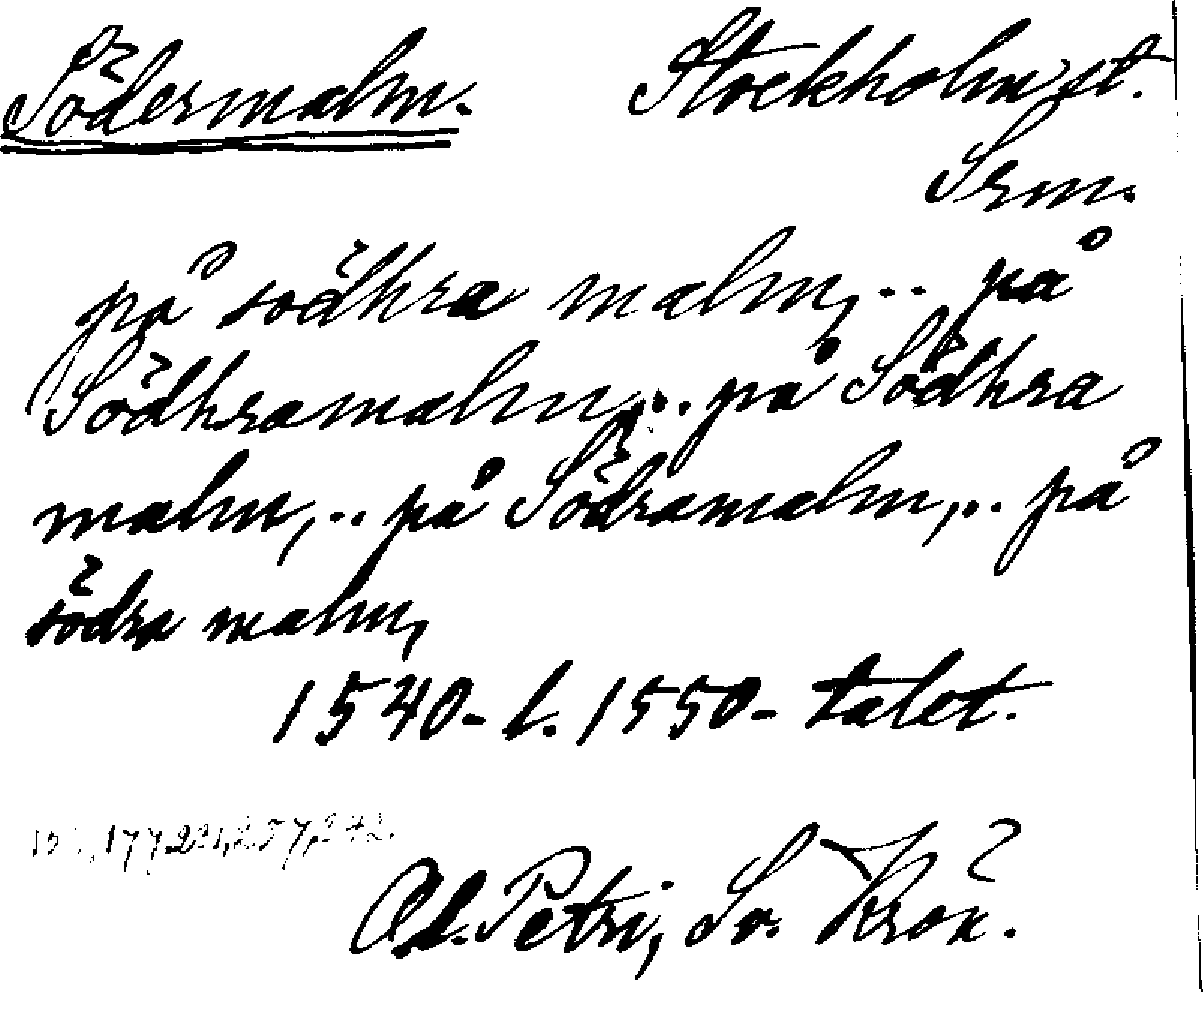 Södermalm. Stockholm st.
Srm.
på södhra malm, .. på
Södhramalm, .. på Södhra
malm, .. på Södramalm, .. på
södra malm,
1540- l. 1550- talet.
177, 221, 257, 242.
Ol. Petri, Sv. Krön.